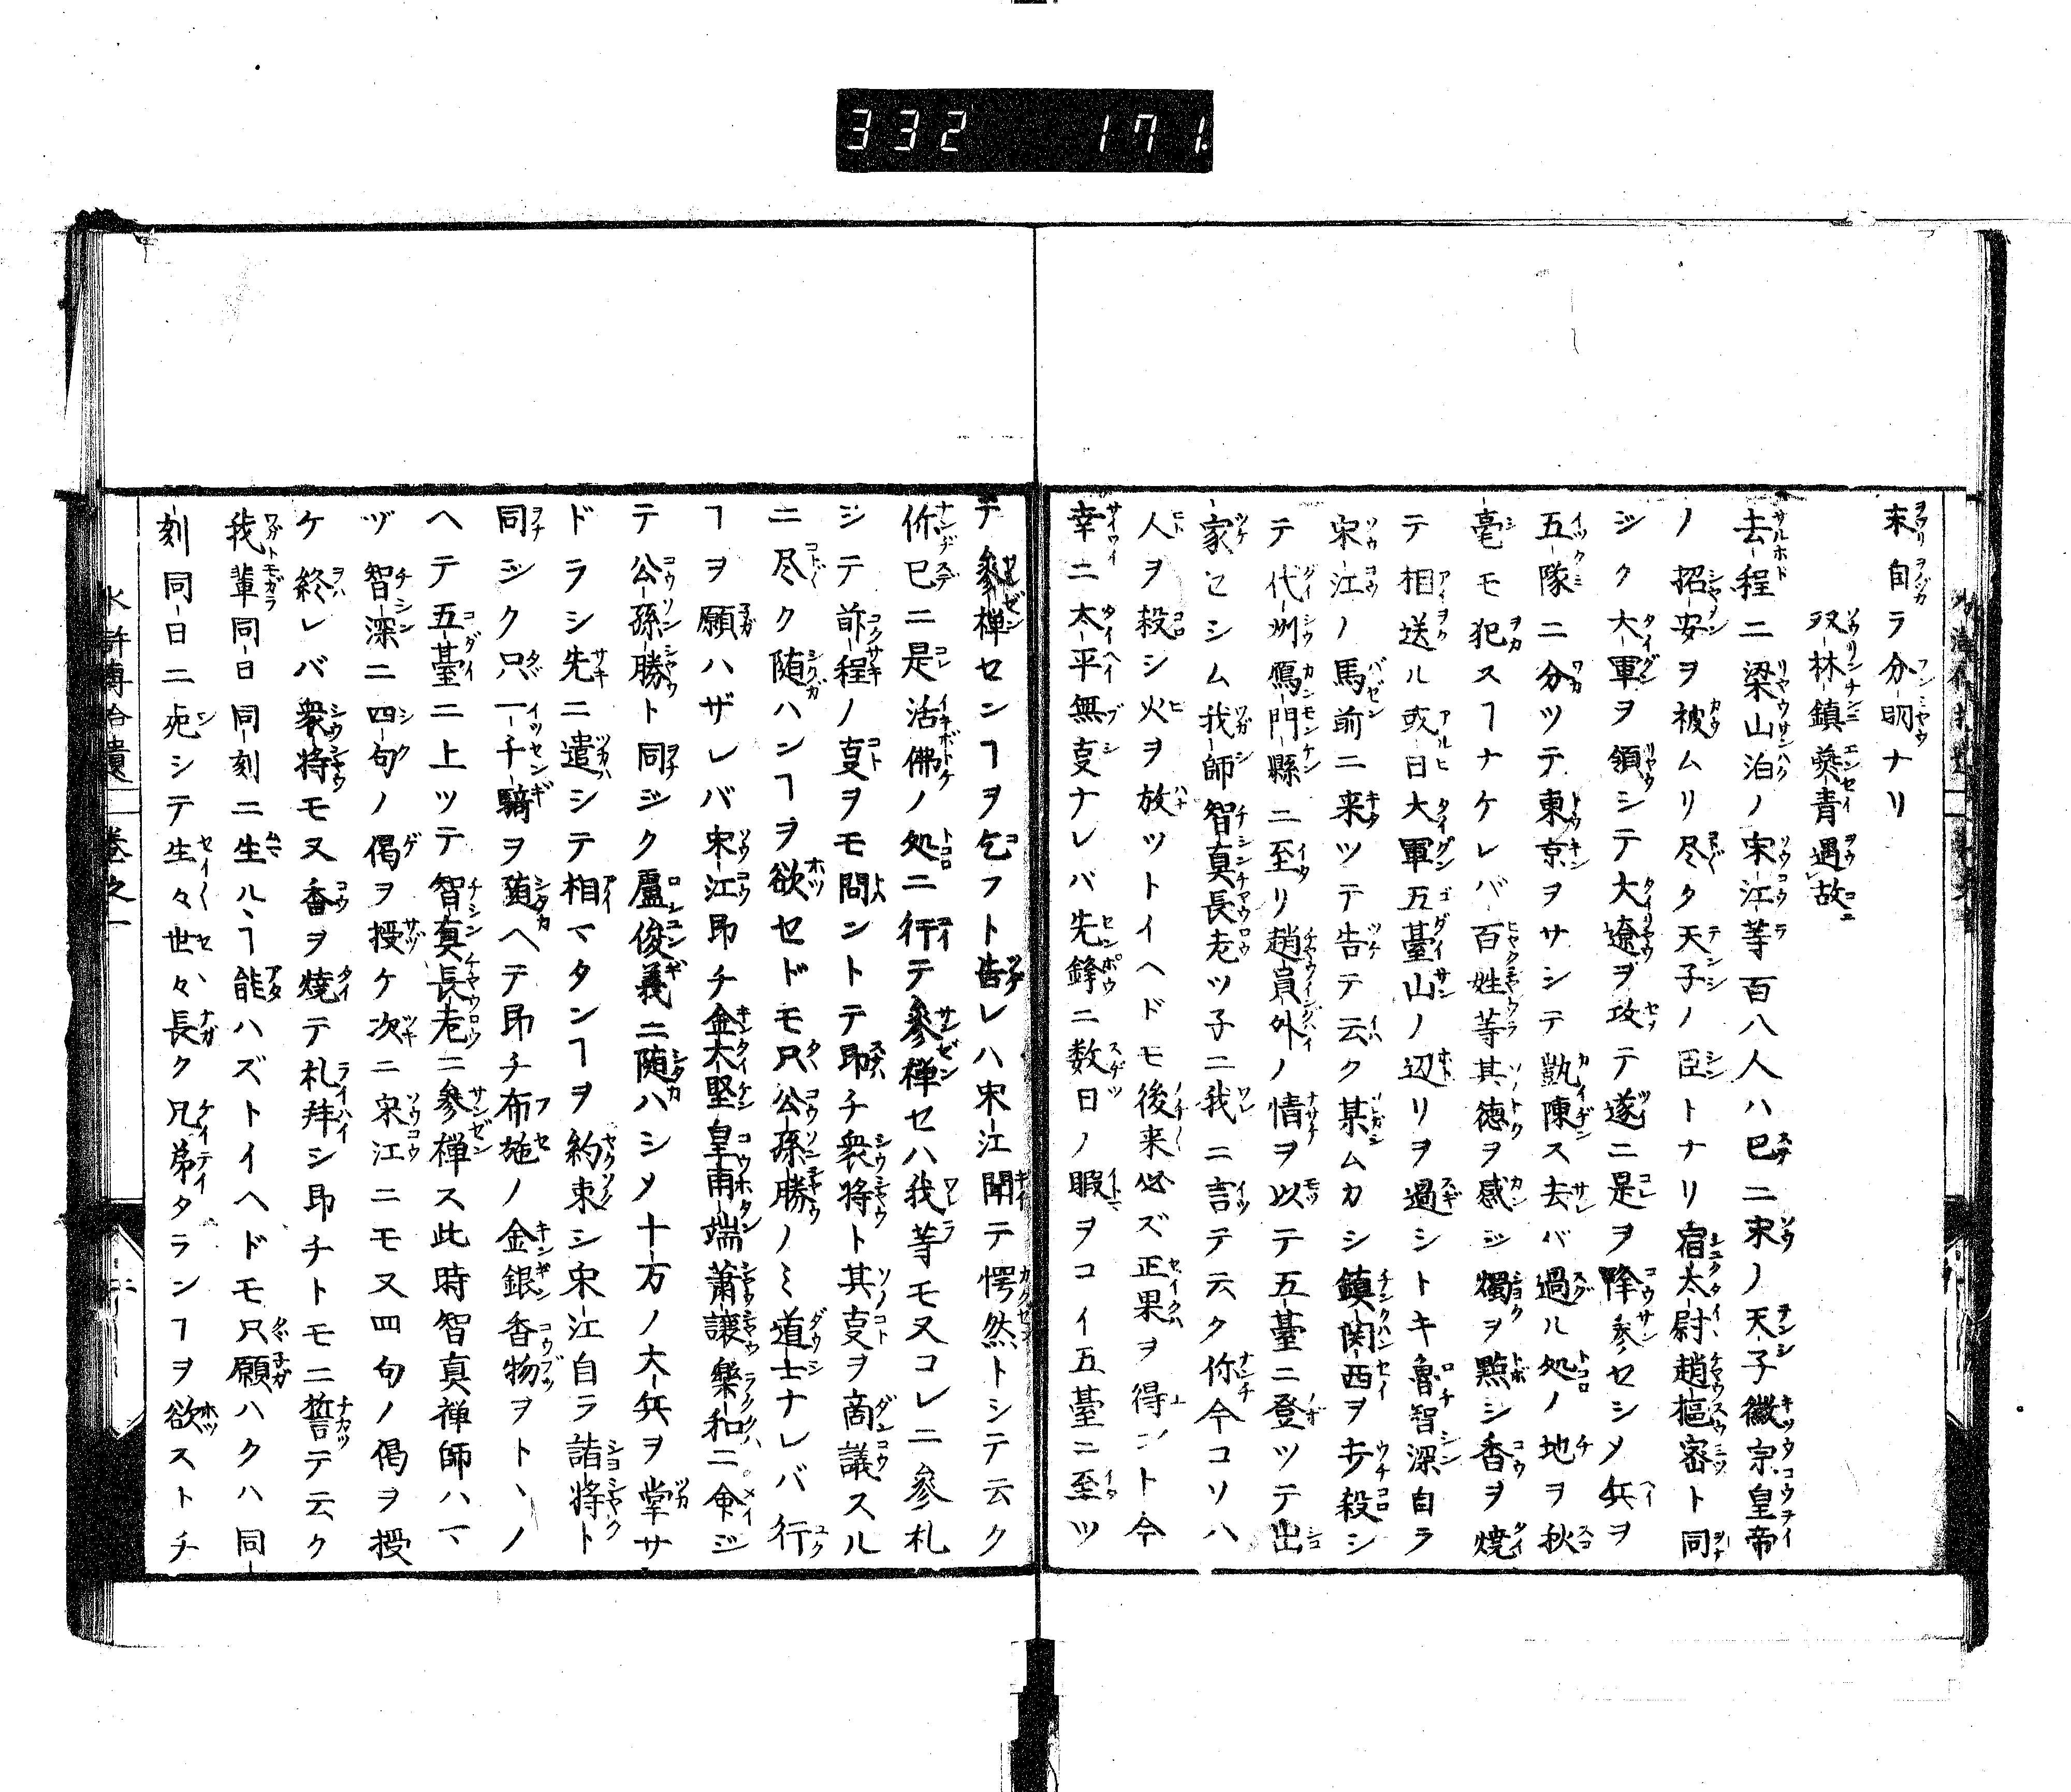 332 171.
末自ラ分明ナリ
双林鎮燕青遇故
去程ニ梁山泊ノ宋江等百八人ハ已ニ宋ノ天子徽宗皇帝
ノ招安ヲ被ムリ尽ク天子ノ臣トナリ宿太尉趙樞密ト同
ジク大軍ヲ領シテ大遼ヲ攻テ遂ニ是ヲ降参セシメ兵ヲ
五隊ニ分ツテ東京ヲサシテ凱陳ス去バ過ル処ノ地ヲ秋
毫モ犯スヿナケレバ百姓等其徳ヲ感ジ燭ヲ點シ香ヲ焼
テ相送ル或日大軍五臺山ノ辺リヲ過シトキ魯智深自ラ
宋江ノ馬前ニ来ツテ告テ云ク某ムカシ鎮関西ヲ歩殺シ
テ代州鴈門縣ニ至リ趙員外ノ情ヲ以テ五臺ニ登ツテ出
家セシム我師智真長老ツ子ニ我ニ言テ云ク你今コソハ
人ヲ殺シ火ヲ放ツトイヘドモ後来必ズ正果ヲ得ント今
幸ニ太平無㕝ナレバ先鋒ニ数日ノ暇ヲコイ五臺ニ至ツ
テ參禅センヿヲ乞フト告レハ宋江聞テ愕然トシテ云ク
你已ニ是活佛ノ処ニ行テ參禅セハ我等モ又コレニ參札
シテ前程ノ㕝ヲモ問ントテ即チ衆将ト其㕝ヲ商議スル
ニ尽ク随ハンヿヲ欲セドモ只公孫勝ノミ道士ナレバ行
ヿヲ願ハザレバ宋江即チ金大堅皇甫端蕭譲樂和ニ命ジ
テ公孫勝ト同ジク盧俊義ニ随ハシメ十万ノ大兵ヲ掌サ
ドラシ先ニ遣シテ相マタンヿヲ約束シ宋江自ラ諸将ト
同ジク只一千騎ヲ随ヘテ即チ布施ノ金銀香物ヲトヽノ
ヘテ五臺ニ上ツテ智真長老ニ參禅ス此時智真禅師ハマ
ヅ智深ニ四句ノ偈ヲ授ケ次ニ宋江ニモ又四句ノ偈ヲ授
ケ終レバ衆将モ又香ヲ焼テ札拜シ即チトモニ誓テ云ク
我輩同日同刻ニ生ルヽヿ能ハズトイヘドモ只願ハクハ同
刻同日ニ死シテ生々世々長ク兄弟タランヿヲ欲ストチ
水許傳拾遺 卷之一 二